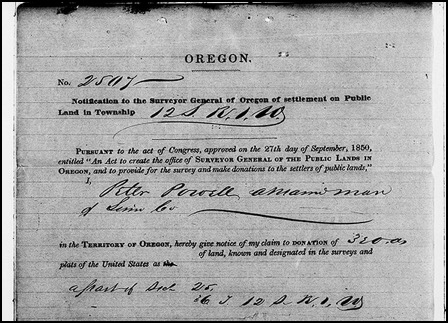 OREGON.
No. 2507
Notification to the Surveyor General of Oregon of settlement on Public
Land in Township 12 S. R. 1, W.
PURSUANT to the act of Congress, approved on the 27th day of September, 1850,
entitled "An Act to create the office of SURVEYOR GENERAL OF THE PUBLIC LANDS IN
OREGON, and to provide for the survey and make donations to the settlers of public lands,"
I, Peter Powell a married man
of Linn Co
in the TERRITORY OF OREGON, hereby give notice of my claim to DONATION OF 320. as
of land, known and designated in the surveys and
plats of the United States as the
a part of Sect 25,
26 T 12 S R. 1, W